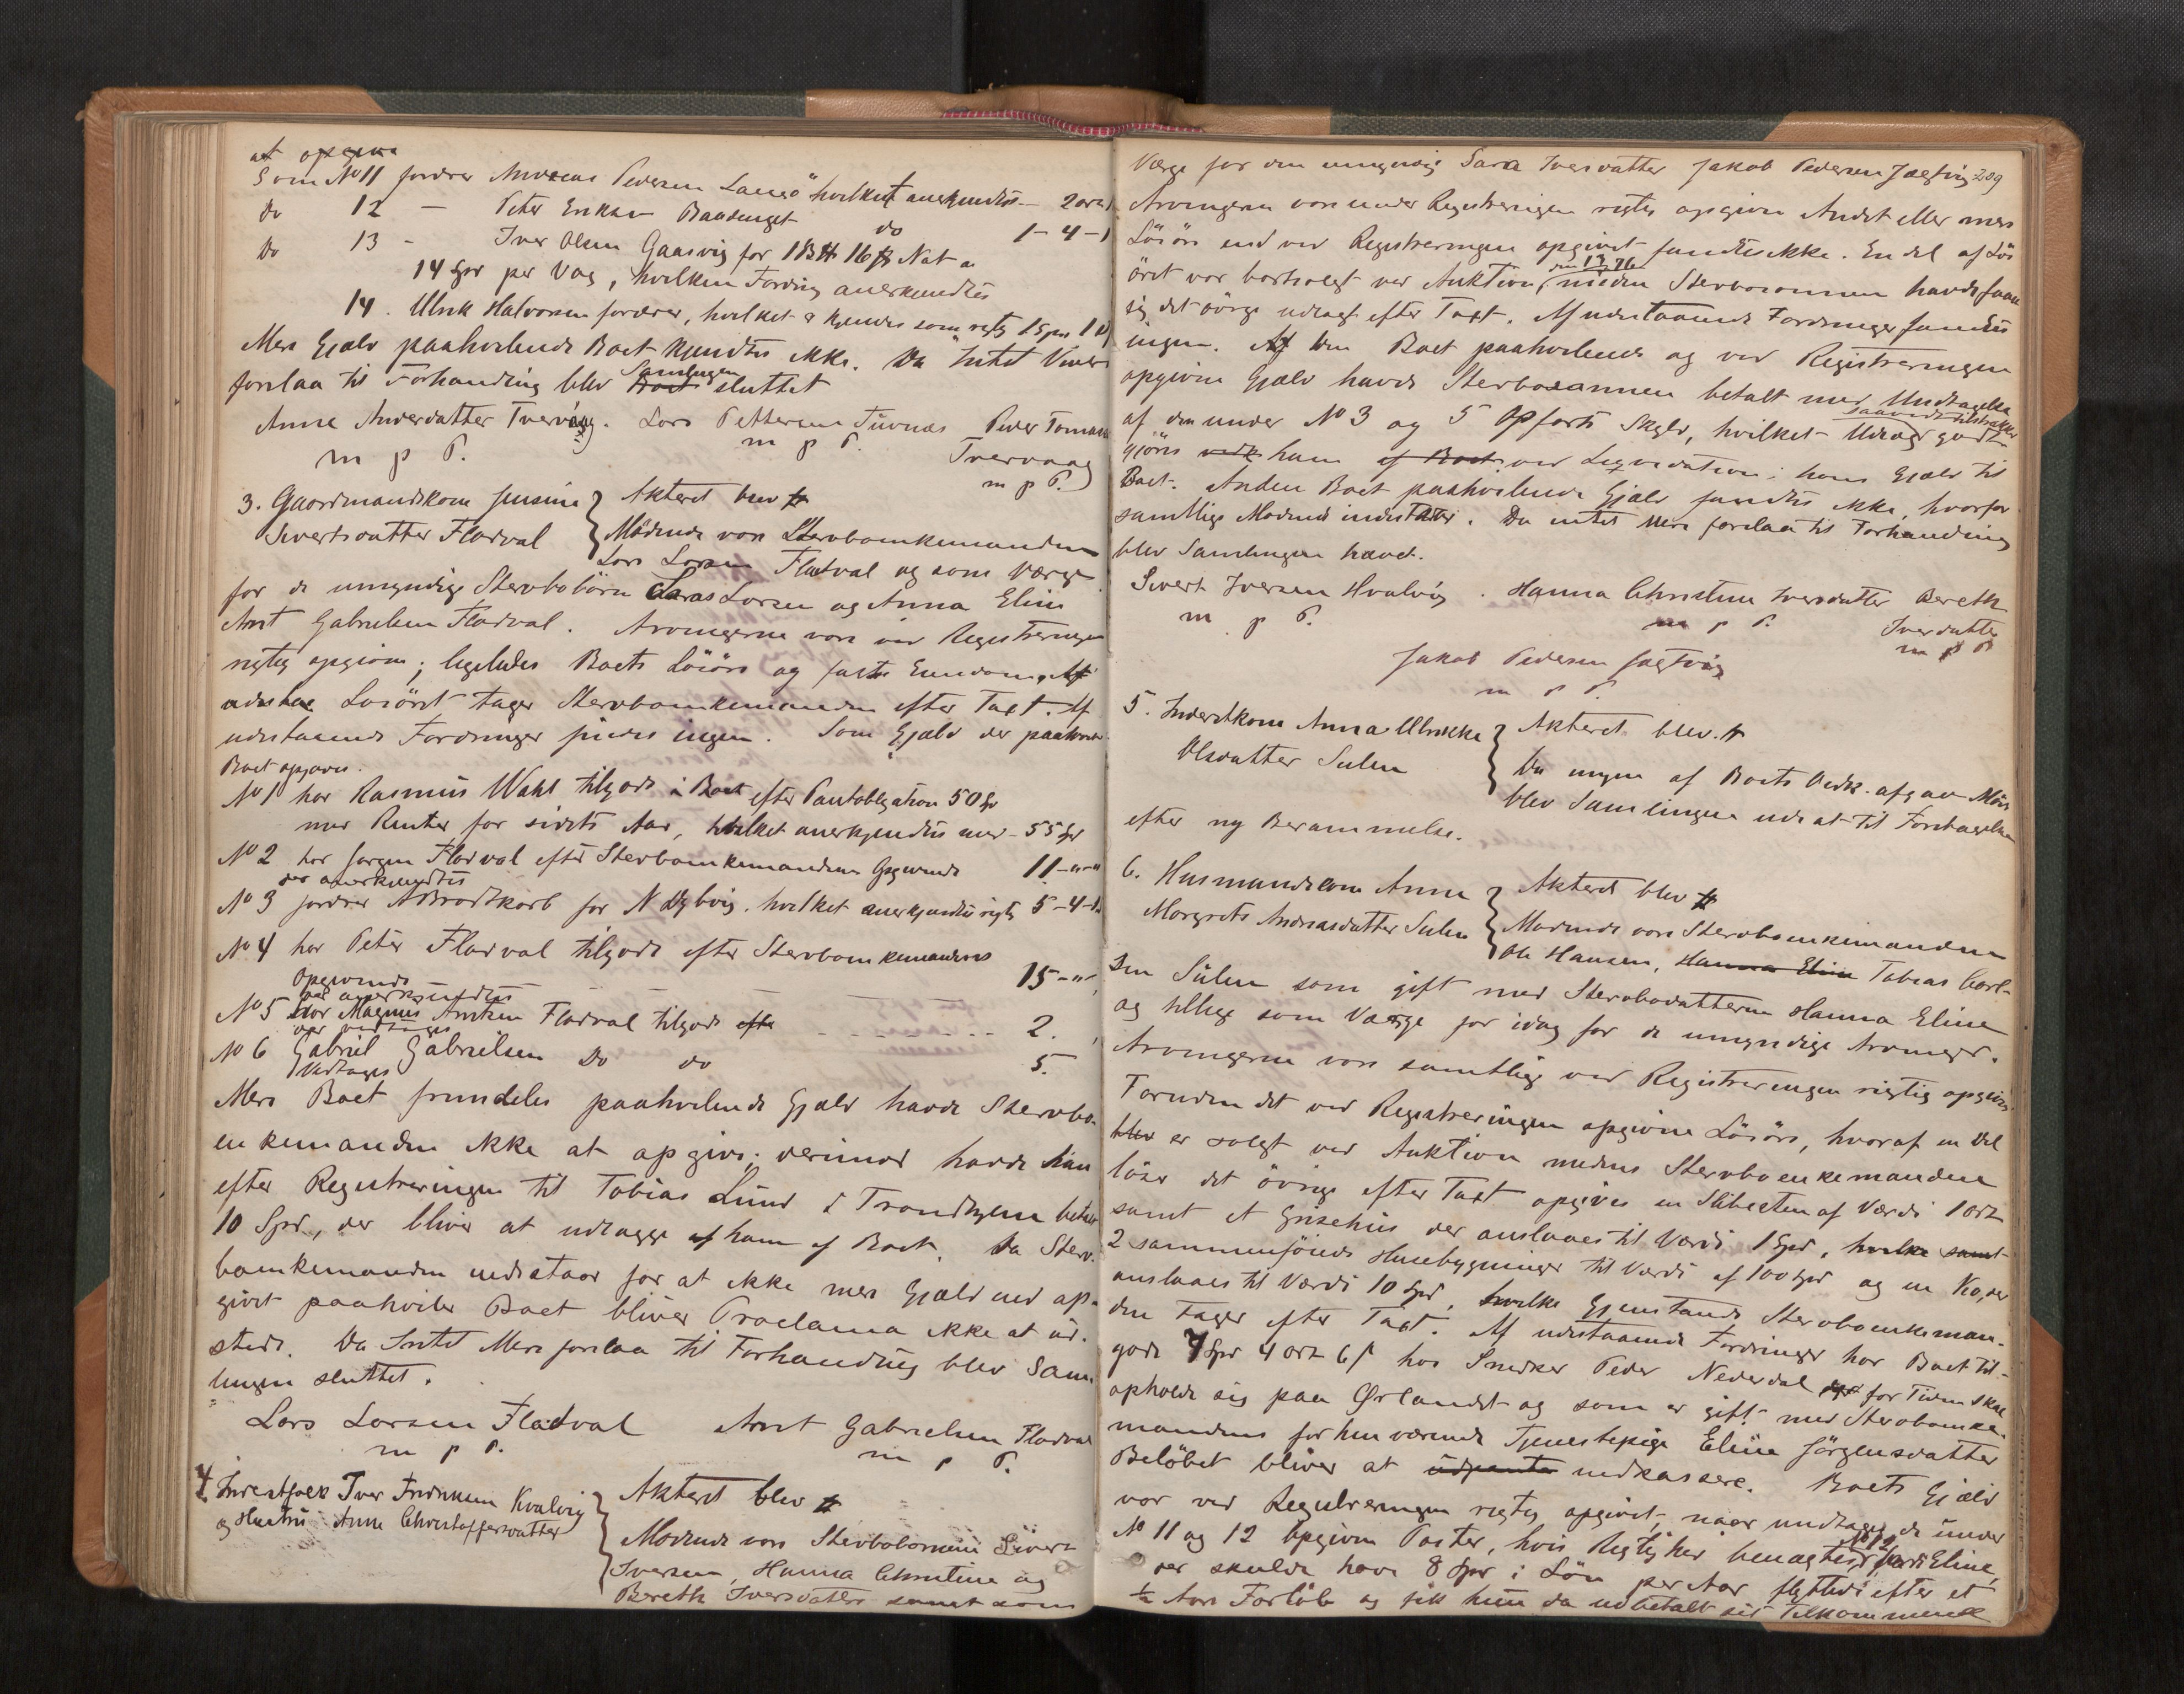 at opgive
Som No 11 fordrer Andreas Pedersen Langö hvilket anerkjendtes - 2 ort
Do 12 - Peter Eriksen Baadsuget do 1-4-1
Do 13 - Iver Olsen Gaasvig for 16 Nat a
14 Spd per Vog, hvilken Fordring anerkjendtes
14. Ulrik Halvorsen fordrer, hvilket kjendes som rigtig 1 Spd 1
Mere Gjæld paahvilende Boet kjendtes ikke. Da Intet Videre
forelaa til Forhandling blev Boet Samlingen sluttet
Anne Andersdatter Tvervaag. Lars Pettersen Tuvnæs Peder Toman
m p P. m p P. Tvervaag
m p P.
3. Gaardmandskone Jensine Akteret blev
Sivertsdatter Fladval Mödende vare Stervboenkemanden
Lars Larsen Fladval og som Værge
for de umyndige Stervbobörn Lars Larsen og Anna Elen
Arnt Gabrielsen Fladval. Arvingerne vare ved Registreringen
rigtig opgivne; ligeledes Boets Lösöre og faste Eiendom. Af
Lösöret tager Stervboenkemanden efter Taxt. Af
udestaaende Fordringer findes ingen. Som Gjæld der paahviler
Boet opgaves.
No 1 har Rasmus Wahl tilgode i Boet efter Pantobligation 50 Spd
med Renter for sidste Aar, hvilket anerkjendtes med - 55 Spd
No 2 har Jørgen Fladval efter Stervboenkemandens Opgivende 11-"-"
der anerkjendtes
No 3 fordrer A Brodtkorb for N Dybvig. hvilket anerkjendtes rigtig 5-4-
No 4 har Peter Fladval tilgode efter Stervboenkemandens
Opgivende 15-"-
der anerkjendtes
No 5 har Magnus Antken Fladval tilgode efter 2.
der vedtages
No 6 Gabriel Gabrielsen Do do 5.
Vedtages
Mere Boet fremdeles paahvilende Gjæld havde Stervbo-
enkemanden ikke at opgive; derimod havde han
efter Registreringen til Tobias Lund i Trondhjem betalt
10 Spd, der bliver at udlægge af ham af Boet. Da Sterv-
boenkemanden indestaar for at ikke mere Gjæld end op-
givet paahviler Boet bliver Proclama ikke at ud-
stede. Da Intet Mere forelaa til Forhandling blev Sam-
lingen sluttet.
Lars Larsen Fladval Arnt Gabrielsen Fladval
m p P. m p P.
4. Inderstfolk Iver Fredriksen Kvalvig Akteret blev
og Hustru Anne Christoffersdatter Mödende vare Stervbobörnene Sivert
Iversen, Hanna Christine og
Bereth Iversdatter samt som
Værge for den umyndig Sara Iversdatter Jakob Pedersen Jægtvig 209
Arvingerne vare under Registreringen rigtig opgivne Andet eller mere
Lösöre end ved Registreringen opgivet fandtes ikke. En del af Lös
öret var bortsolgt ved Auktion, den 13/76 medens Stervbosønnen havde faaet
sig det övrige udlagt efter Taxt. Af udestaaende Fordringer fandtes
ingen. Af den Boet paahvilende og ved Registreringen
opgivne Gjæld havde Stervbosønnen betalt med Undtagelse
af den under No 3 og 5 Opførte Skyld, hvilket Udlæg saavidt tilstrækker godt-
gjöres ham af Boet ved Liqvidation i hans Gjæld til
Boet. Anden Boet paahvilende Gjæld fandtes ikke, hvorfor
samtlige Mødende indestaar. Da intet mere forelaa til Forhandling
blev Samlingen hævet.
Sivert Iversen Hvalvig . Hanna Christine Iversdatter Bereth
m p P. m p P. Iversdatter
m p P
Jakob Pedersen Jægtvig
m p P.
5. Inderstkone Anna Ulrikke Akteret blev.
Olsdatter Sulen Da ingen af Boets Vedk. afgav Möde
blev Samlingen udsat til Foretagelse
efter ny Berammelse.
6. Husmandskone Anne Akteret blev
Margrete Andreasdatter Sulen Mødende vare Stervboenkemanden
Ole Hansen, Hanna Eline Tobias Carl-
sen Sulen som gift med Stervbodatteren Hanna Eline
og tillige som Værge for idag for de umyndige Arvinger.
Arvingerne vare samtlige ved Registreringen rigtig opgivne
Foruden det ved Registreringen opgivne Lösöre, hvoraf en Del
blev er solgt ved Auktion medens Stervboenkemanden
löser det övrige efter Taxt opgives en Slibesten af Værdi 1 ort
samt et Grisehus der anslaaes til Værdi 1 Spd, hvilke samt
2 sammenföiede Husebygninger til Værdi af 100 Spd og en Ko, der
anslaaes til Værdi 10 Spd, hvilke Gjenstande Stervboenkeman-
den tager efter Taxt. Af udestaaende Fordringer har Boet til-
gode 7 Spd 4 ort 6 s hos Snedker Peder Nederdal der for Tiden skal
opholde sig paa Ørlandet og som er gift med Stervboenke-
mandens forhenværende Tjenestepige Eline Jörgensdatter
Belöbet bliver at udpante indkassere. Boets Gjæld
var ved Registreringen rigtig opgivet, naar undtages de under
No 11 og 12 Opgivne Poster, hvis Rigtighed benægtes, No 12 fordi Eline,
der skulde have 8 Spd i Lön per Aar flyttede efter et
1/2 Aars Forlöb og fik hun da udbetalt sit Tilkommende